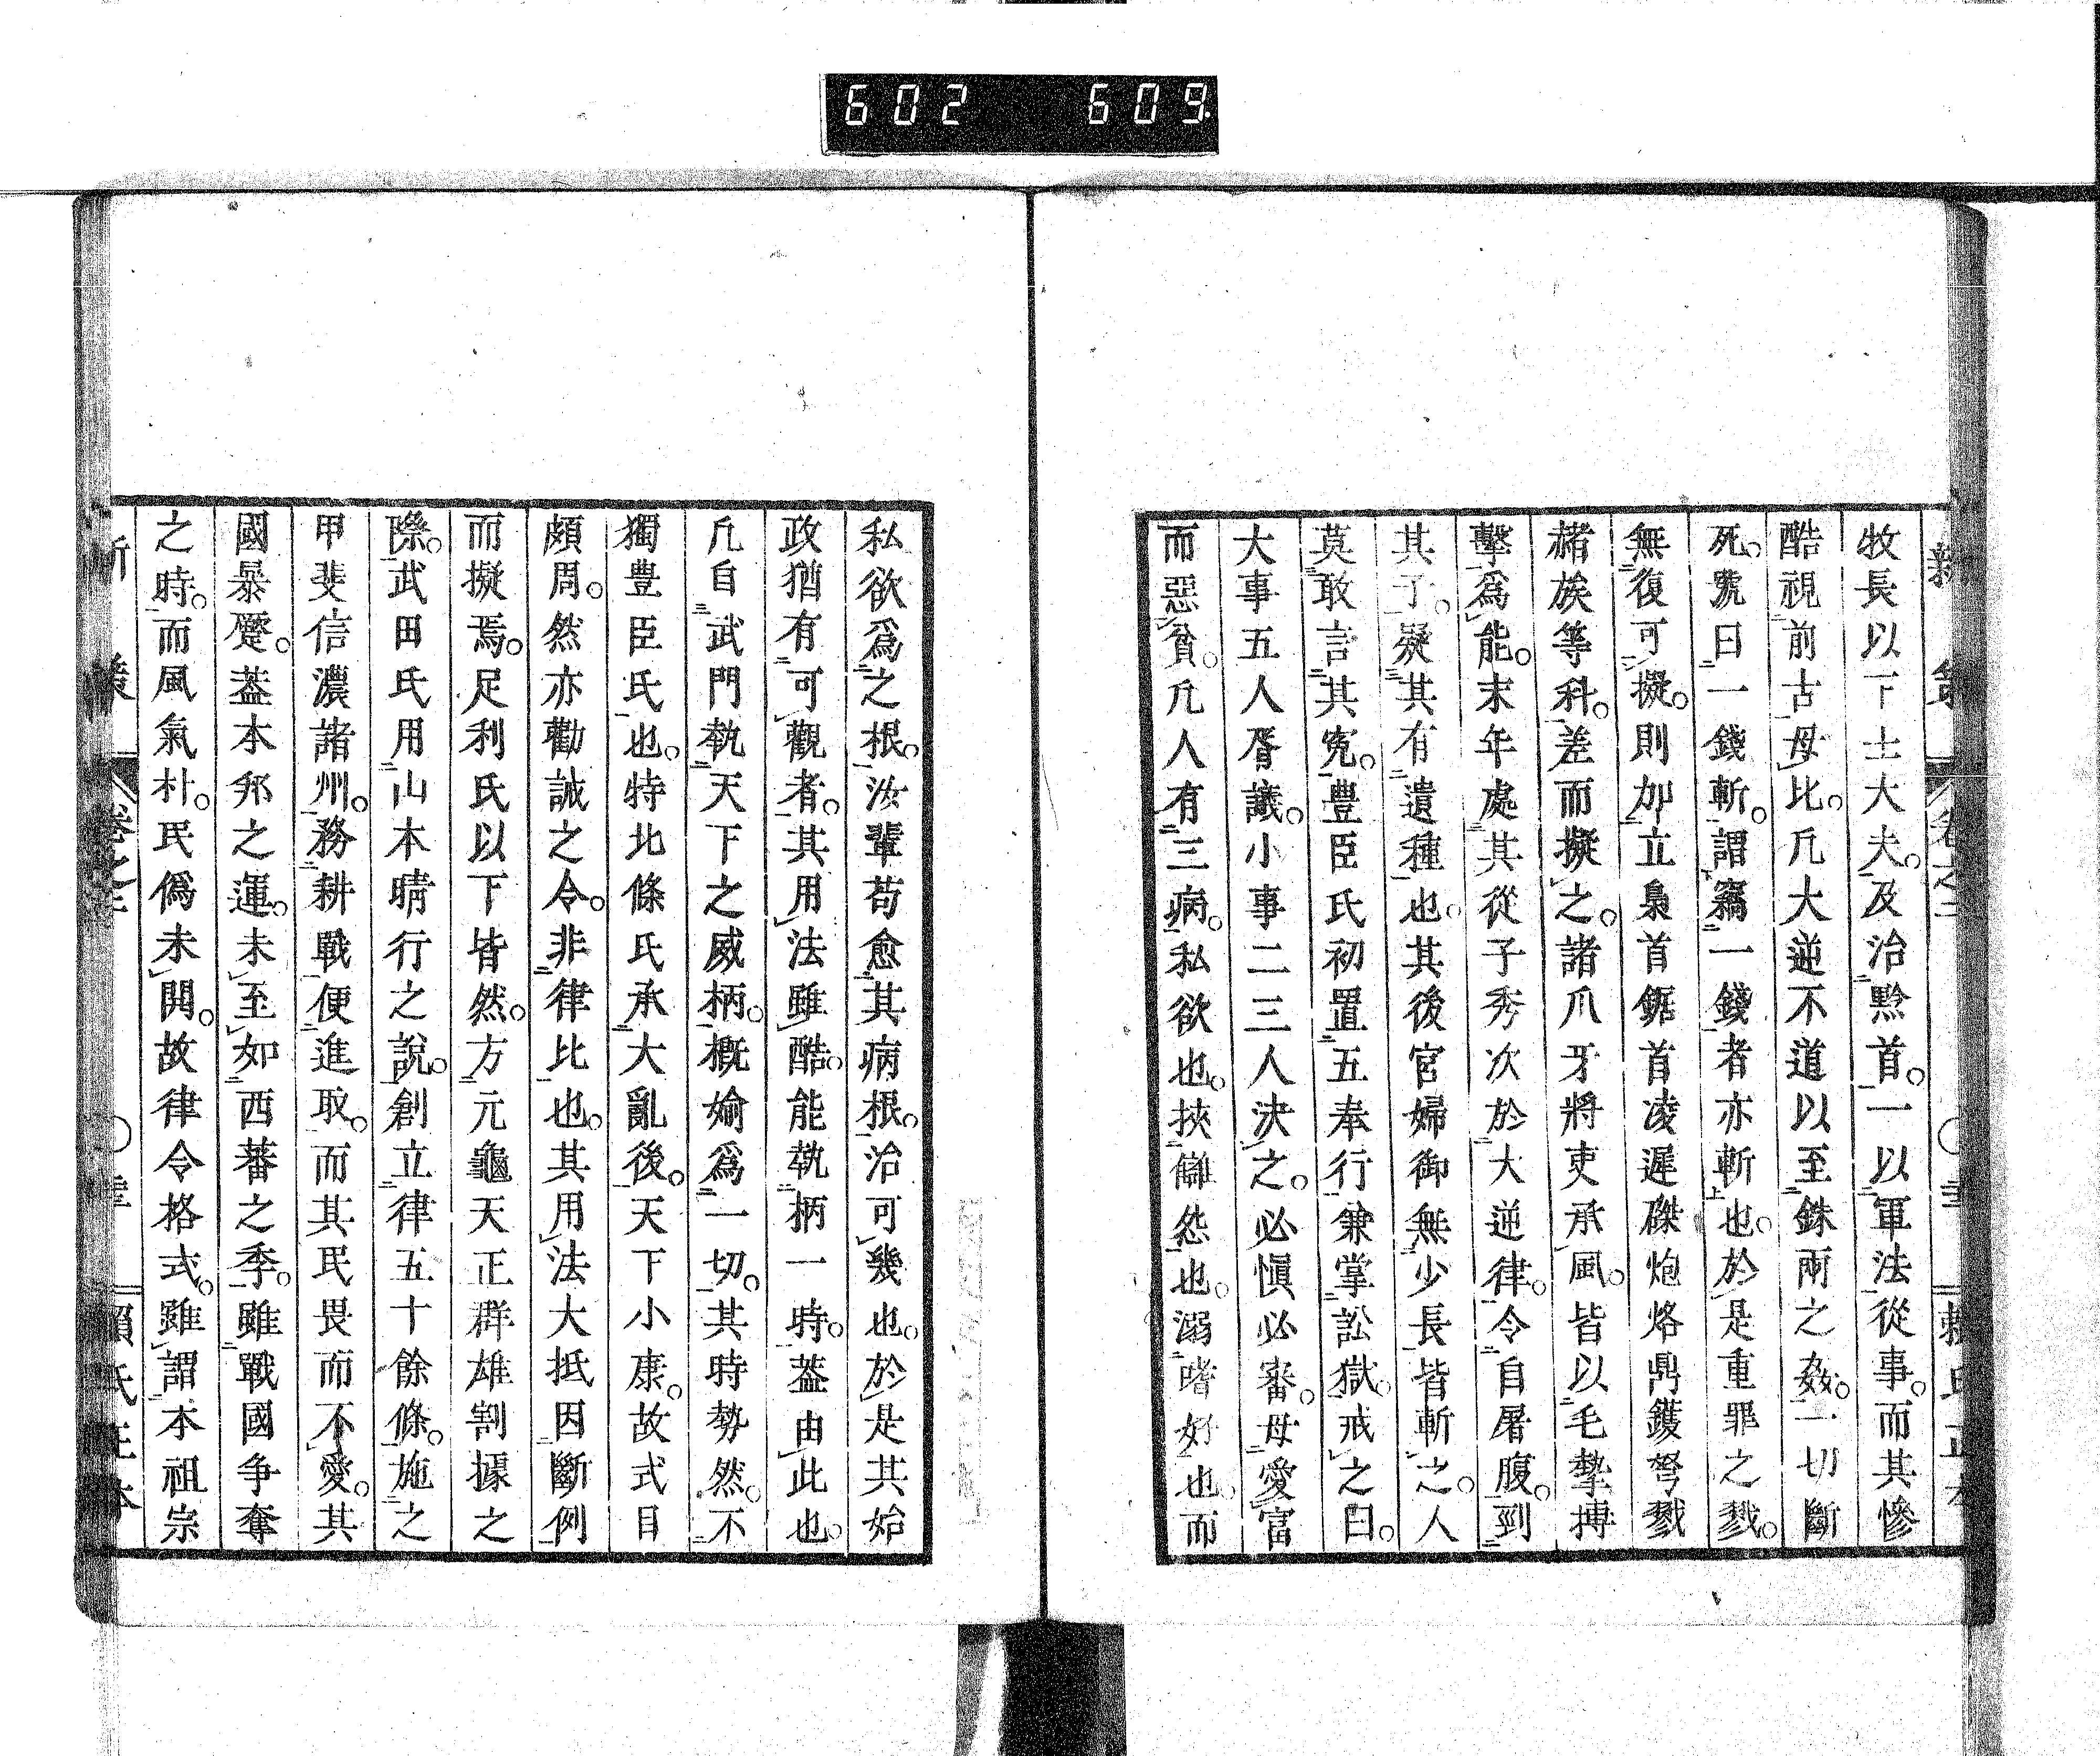 602 609
牧長以下士大夫。及治黔首。一以軍法從事。而其慘
酷視前古毋比。凡大逆不道以至銖兩之姦。一切斷
死。號曰一錢斬。謂竊一錢者亦斬也。於是重罪之戮。
無復可擬。則加立梟首鋸首凌遲磔炮烙鼎鑊弩戮
赭族等科。差而擬之。諸爪牙將吏承風。皆以毛摯搏
擊爲能。末年處其從子秀次於大逆律。令自屠腹。到
其子。疑其有遺種也。其後宮婦御無少長皆斬之。人
莫敢言其寃。豊臣氏初置五奉行兼掌訟獄。戒之曰。
大事五人胥議。小事二三人決之。必愼必審。毋愛富
而惡貧。凡人有三病。私欲也。挾讎怨也。溺嗜好也。而
私欲爲之根。汝輩苟愈其病根。治可幾也。於是其始
政猶有可觀者。其用法雖酷。能執柄一時。葢由此也。
凡自武門執天下之威柄。概媮爲一切。其時勢然。不
獨豊臣氏也。特北條氏承大亂後。天下小康。故式目
頗周。然亦勸誡之令。非律比也。其用法大抵因斷例
而擬焉。足利氏以下皆然。方元龜天正群雄割據之
際。武田氏用山本晴行之說。創立律五十餘條。施之
甲斐信濃諸州。務耕戰便進取。而其民畏而不愛。其
國暴蹷。葢本邦之運。未至如西蕃之季。雖戰國争奪
之時。而風氣朴。民僞未開。故律令格式。雖謂本祖宗